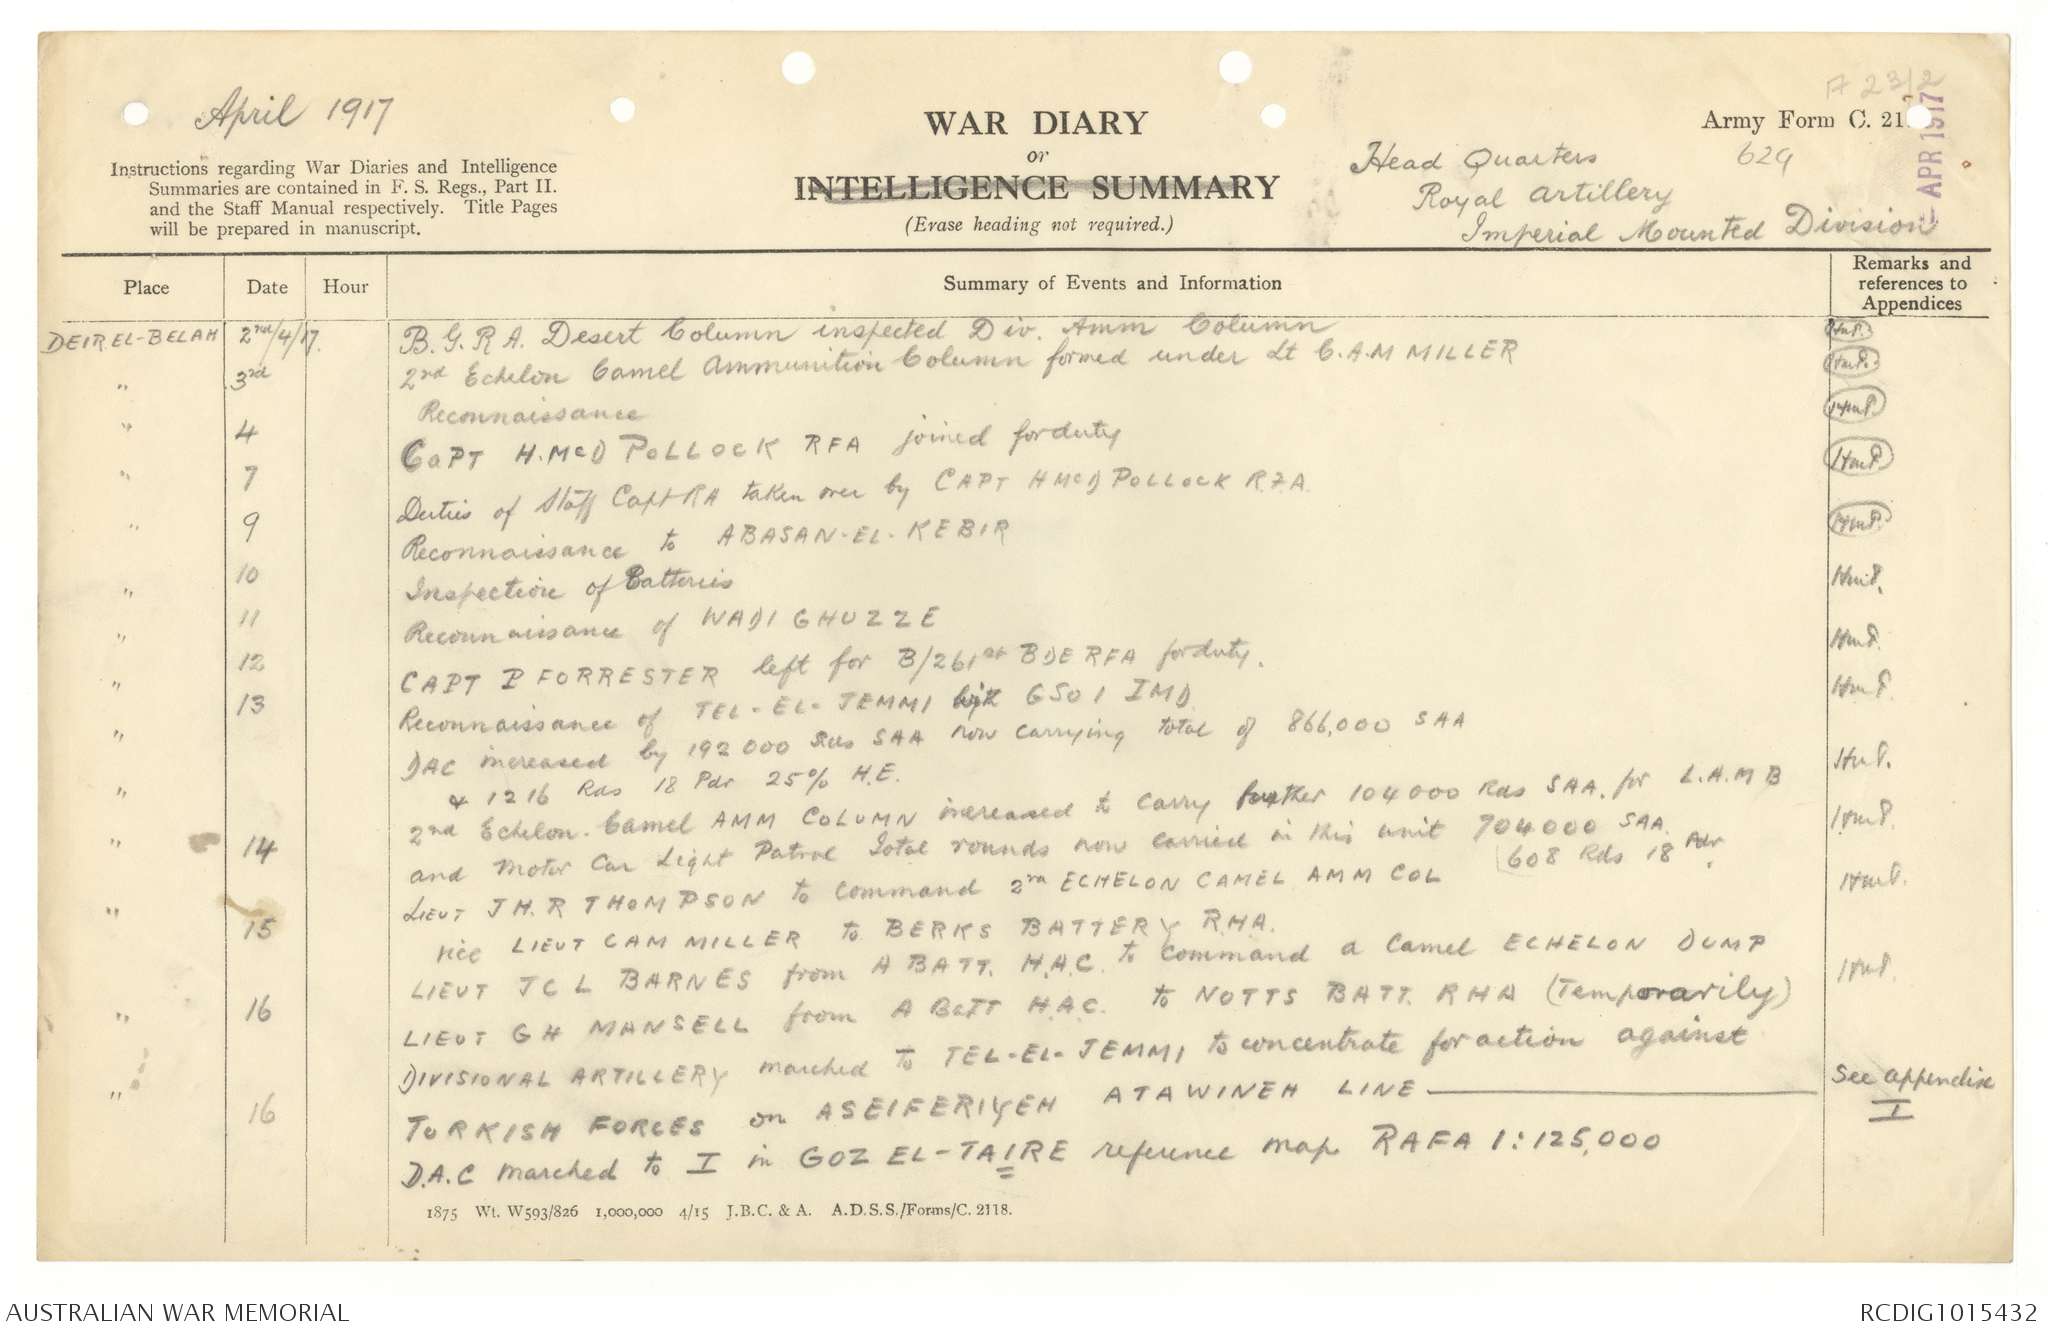 April 1917
WAR DIARY
or
INTELLIGENCE SUMMARY
(Erase heading not required.)
Instructions regarding War Diaries and Intelligence
Summaries are contained in F. S. Regs., Part II.
and the Staff Manual respectively. Title Pages
will be prepared in manuscript.
Army Form C. 21
APR 1917
629
Head Quarters
Royal Artillery
Imperial Mounted Division
Place Date Hour Summary of Events and Information Remarks and
references to
Appendices
DEIR.EL-BELAH 2nd/4/17. B.G.R.A. Desert Column inspected Div. Amm Column HMP.
" 3rd 2nd Echelon Camel Ammunition Column formed under Lt C.A.M MILLER HMP.
Reconnaissance HMP.
" 4 CAPT H.McD POLLOCK RFA joined for duty HMP.
" 7 Duties of Staff Capt RA taken over by CAPT H McD POLLOCK R.F.A. HMP.
" 9 Reconnaissance to ABASAN-EL-KEBIR
" 10 Inspection of Batteries HMP.
" 11 Reconnaissance of WADI GHUZZE HMP.
" 12 CAPT P FORRESTER left for B/261st BDE RFA for duty. HMP.
" 13 Reconnaissance of TEL-EL-JEMMI with GSO 1 IMD HMP.
" DAC increased by 192000 Rds SAA now carrying total of 866,000 SAA
& 1216 Rds 18 Pdr 25% H.E. HMP.
" 14 2nd Echelon. Camel AMM COLUMN increased to carry further 104000 Rds SAA. for L.A.M B
and Motor Car Light Patrol Total rounds now carried in this unit 704000 SAA.
608 Rds 18 Pdr.
LIEUT J H. R THOMPSON to command 2nd ECHELON CAMEL AMM COL HMP.
" 15 vice LIEUT CAM MILLER to BERKS BATTERY RHA.
LIEUT J C L BARNES from A BATT. H.A.C. to command a Camel ECHELON DUMP HMP.
" 16 LIEUT G H MANSELL from A BATT H.A.C. to NOTTS BATT. RHA (Temporarily)
DIVISIONAL ARTILLERY marched to TEL-EL-JEMMI to concentrate for action against
TURKISH FORCES on ASEIFERIYEH ATAWINEH LINE See appendix
I
" 16 D.A.C marched to I in GOZ EL-TAIRE reference map RAFA 1:125,000
1875 Wt. W593/826 1,000,000 4/15 J.B.C. & A. A.D.S.S./Forms/C. 2118.
AUSTRALIAN WAR MEMORIAL
RCDIG1015432